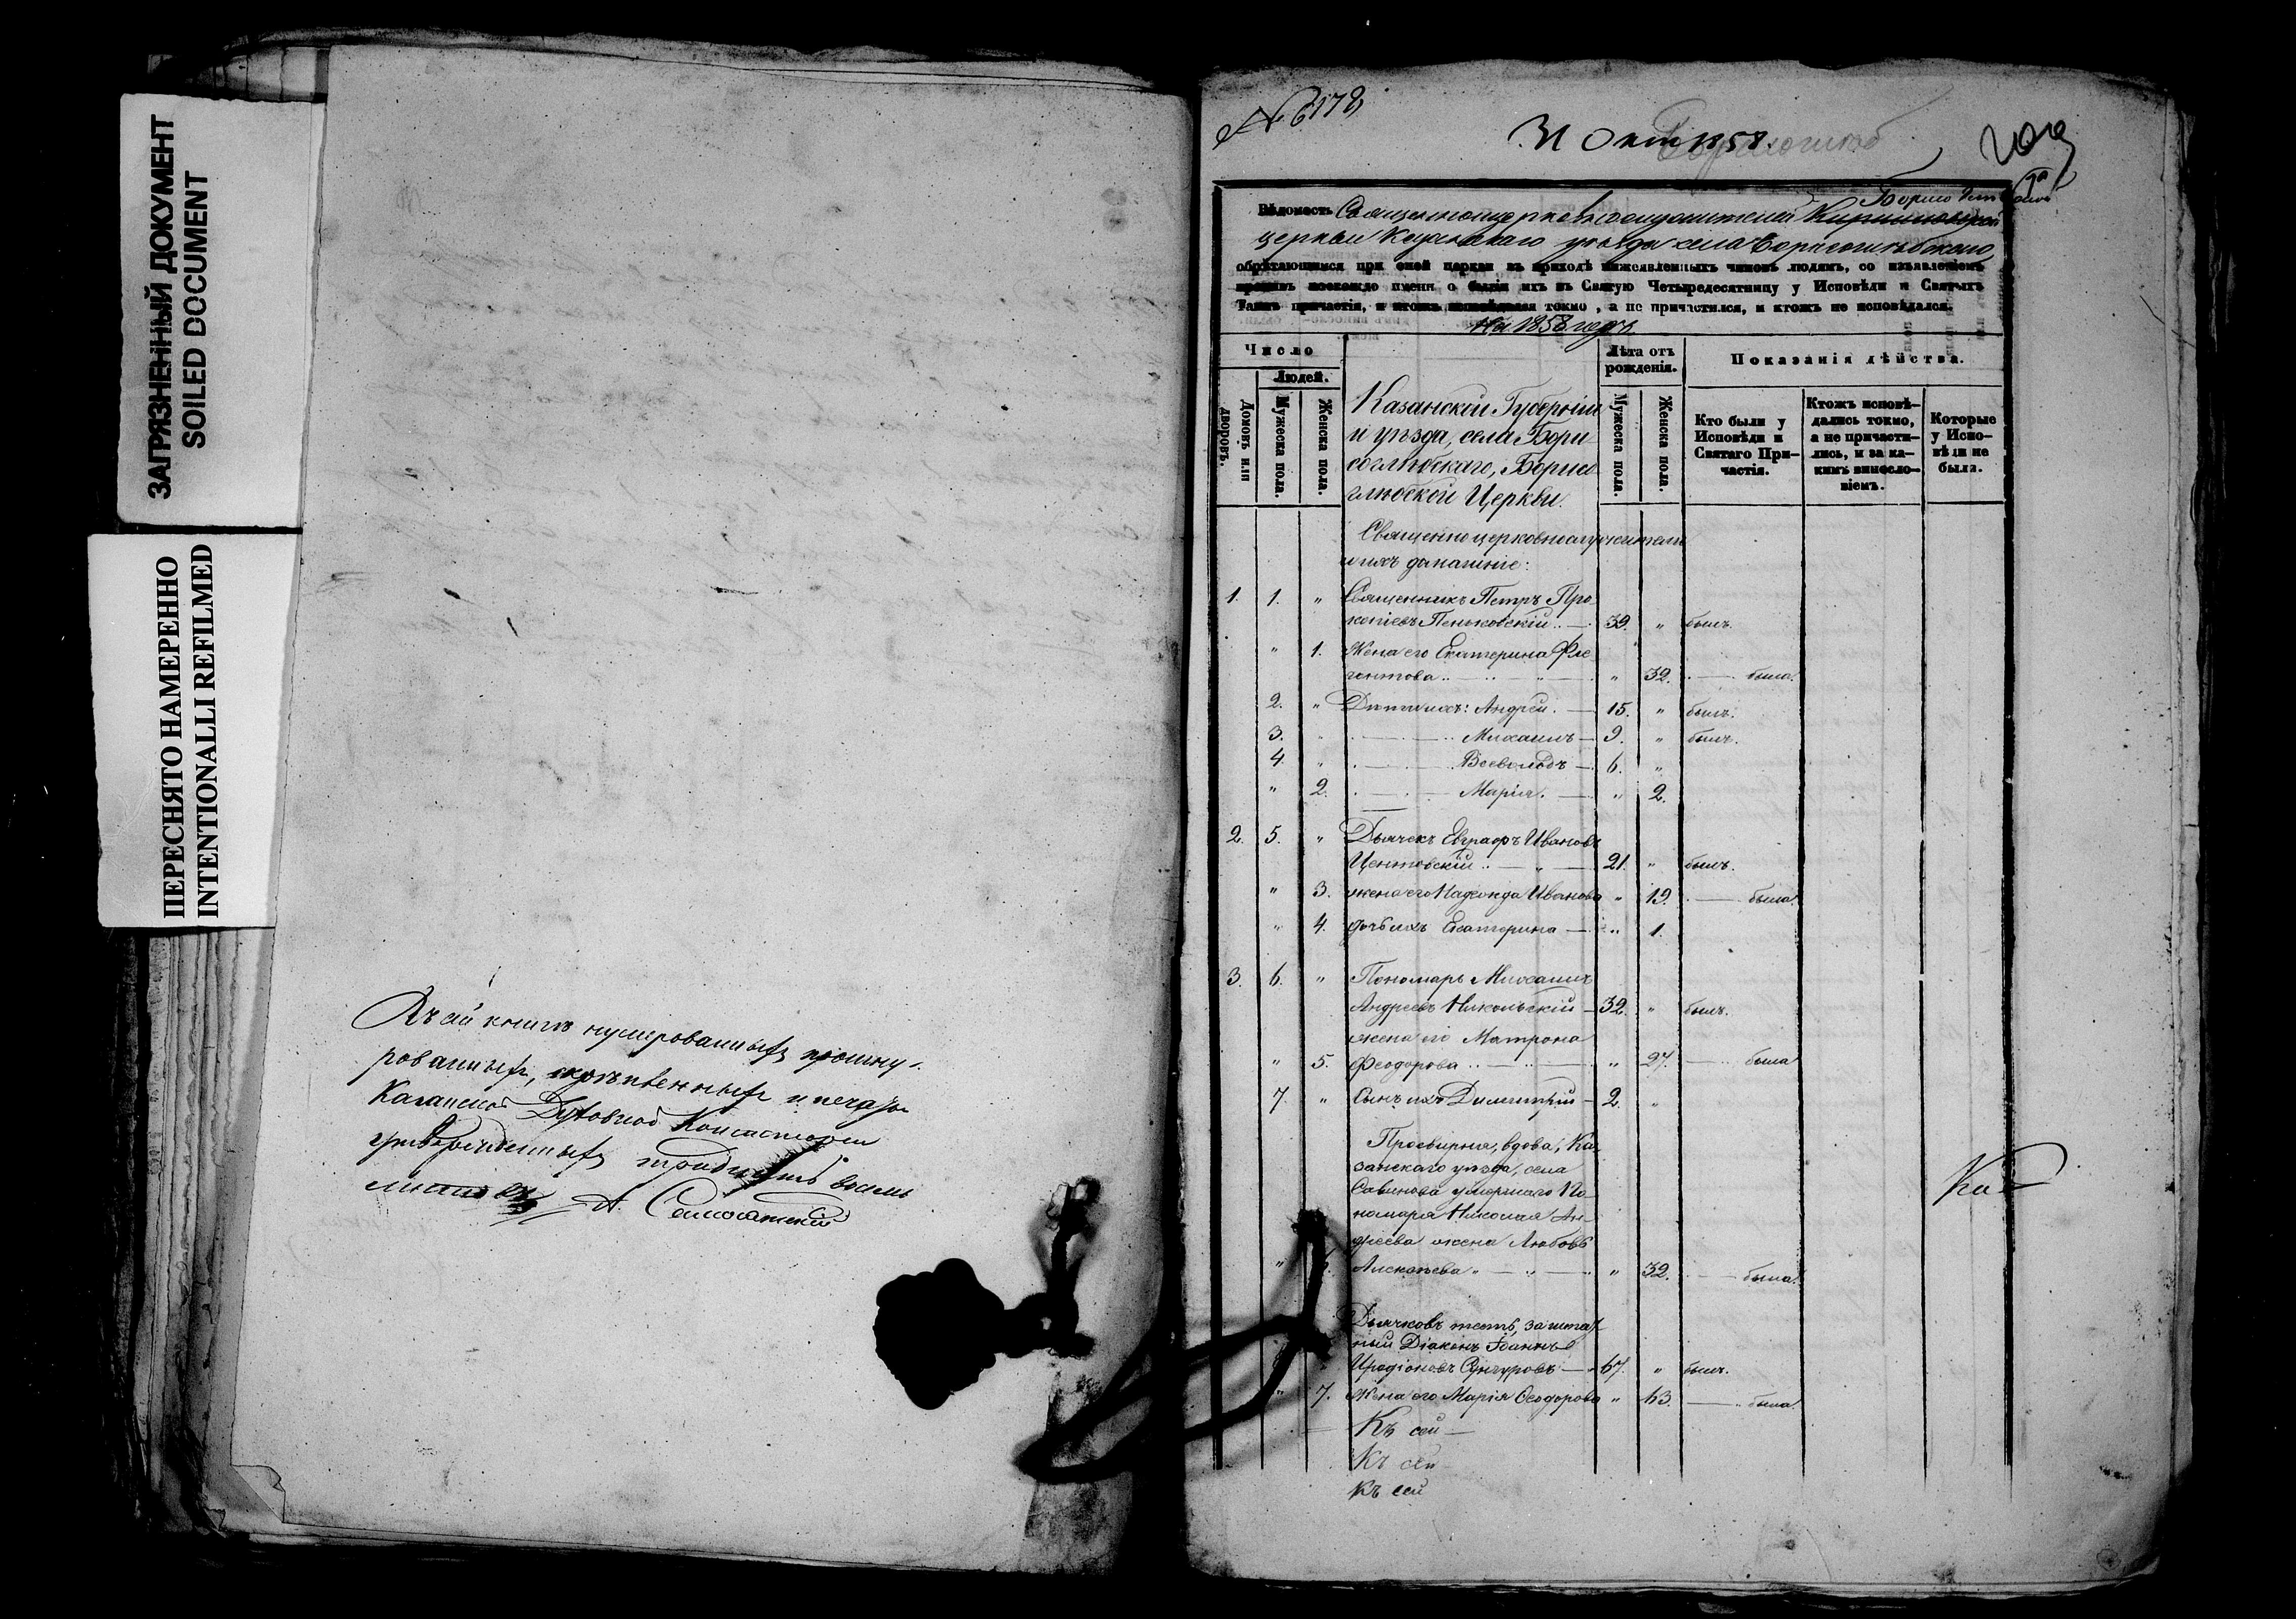 ЗАГРЯЗНЕННЫЙ ДОКУМЕНТ
SOILED DOCUMENT
ПЕРЕСНЯТО НАМЕРЕННО
INTENTIONALLI REFILMED
Въ сей книгѣ нумерованныхъ прошну-
рованныхъ, скрѣпленныхъ и печатью
Казанской Духовной Консисторіи
утвержденныхъ тридцать восемь
листовъ А.
№ 6178
31 Окт 1858.
209
Вѣдомость Священноцерковнослужителей
церкви Казанскаго уѣзда села Борисоглѣбскаго,
обрѣтающимся при оной церкви въ приходѣ нижеявленныхъ чиновъ людямъ, со изъявленіемъ
противъ коегождо имени о бытіи ихъ въ Святую Четыредесятницу у Исповѣди и Святыхъ
Таинъ причастія, и ктожъ исповѣдался токмо, а не причастился, и ктожъ не исповѣдался.
На 1858 годъ.
Число
Людей.
Домовъ или дворовъ.
Мужеска пола.
Женска пола.
Казанской Губерніи
и уѣзда, села Бори
соглѣбскаго, Борисо
глѣбской Церкви.
Лѣта отъ рожденія.
Мужеска пола.
Женска пола.
Показанія дѣйства.
Кто были у Исповѣди и Святаго При-частія.
Ктожъ исповѣ-дались токмо, а не причасти-лись, и за ка-кимъ винесло-віемъ.
Которые у Испо-вѣди не были.
Священноцерковнослужители
и ихъ домашніе:
1. 1. " Священникъ Петръ Про
копіевъ Пеньковскій 39. " былъ.
" 1. Жена его Екатерина Фле
гонтова " 32. была.
2. " Дѣти ихъ: Андрей. 15. " былъ.
3. " Михаилъ 9. " былъ.
4. " Всеволодъ 6. "
" 2. Марія. " 2.
2. 5. " Дьячекъ Евграфъ Ивановъ
Центовскій 21. " былъ.
" 3. жена его Надежда Иванова " 19. была.
" 4. дочь ихъ Екатерина " 1.
3. 6. " Пономарь Михаилъ
Андреевъ Никольскій 32. " былъ.
жена его Матрона
" 5. Феодорова " 27. была
7. " Сынъ ихъ Димитрій 2. "
Просвирня, вдова, Ка
занскаго уѣзда, села
Савинова умершаго По
номаря Николая Ан-
дреева жена Любовь
" Алексѣева " 32. была.
Дьячковъ тесть, заштат
ный Діаконъ Іоаннъ
Иродіоновъ 67. " былъ.
" 7. Жена его Марія Ѳеодорова " 63. была.
Къ сей
Къ сей
Къ сей